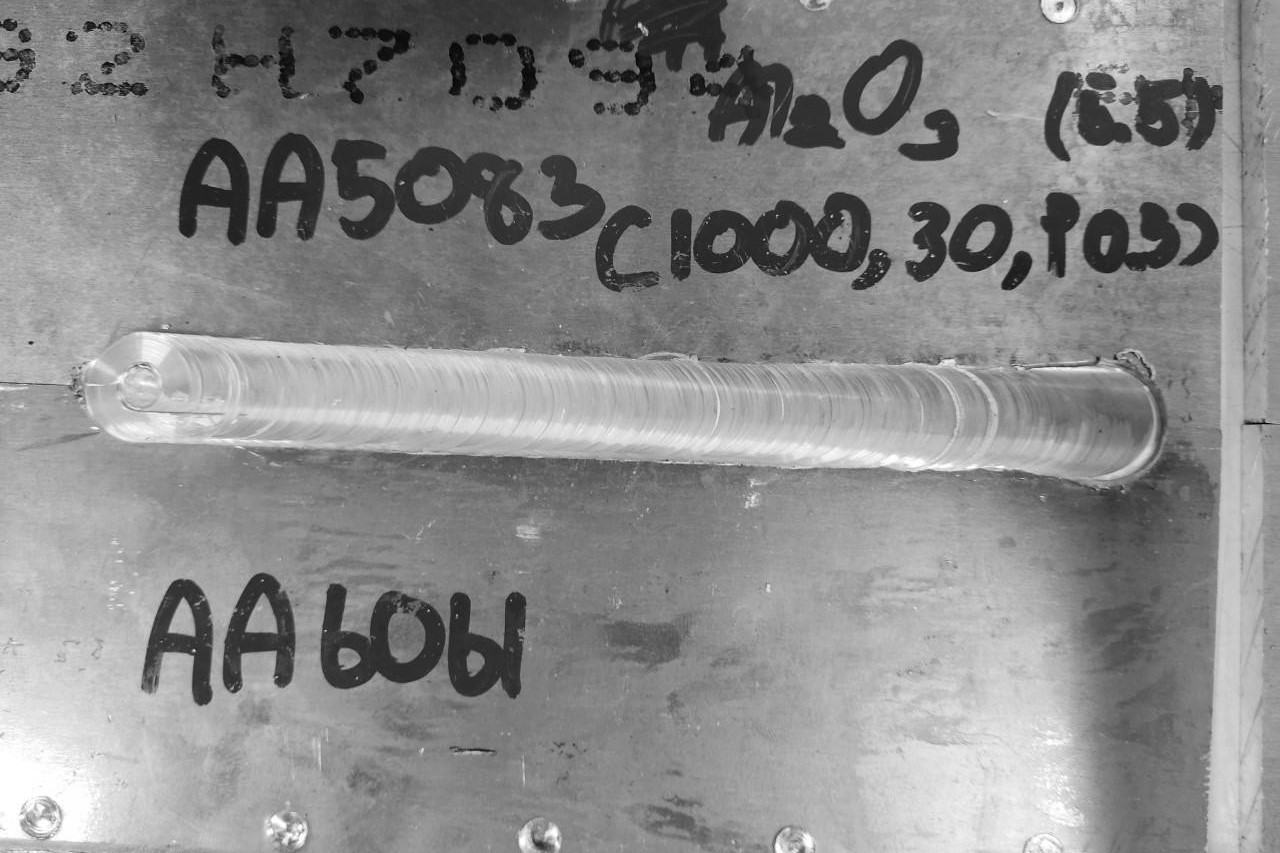 92 H709
Al2O3
AA5083
(1000, 30, P03)
AA6061